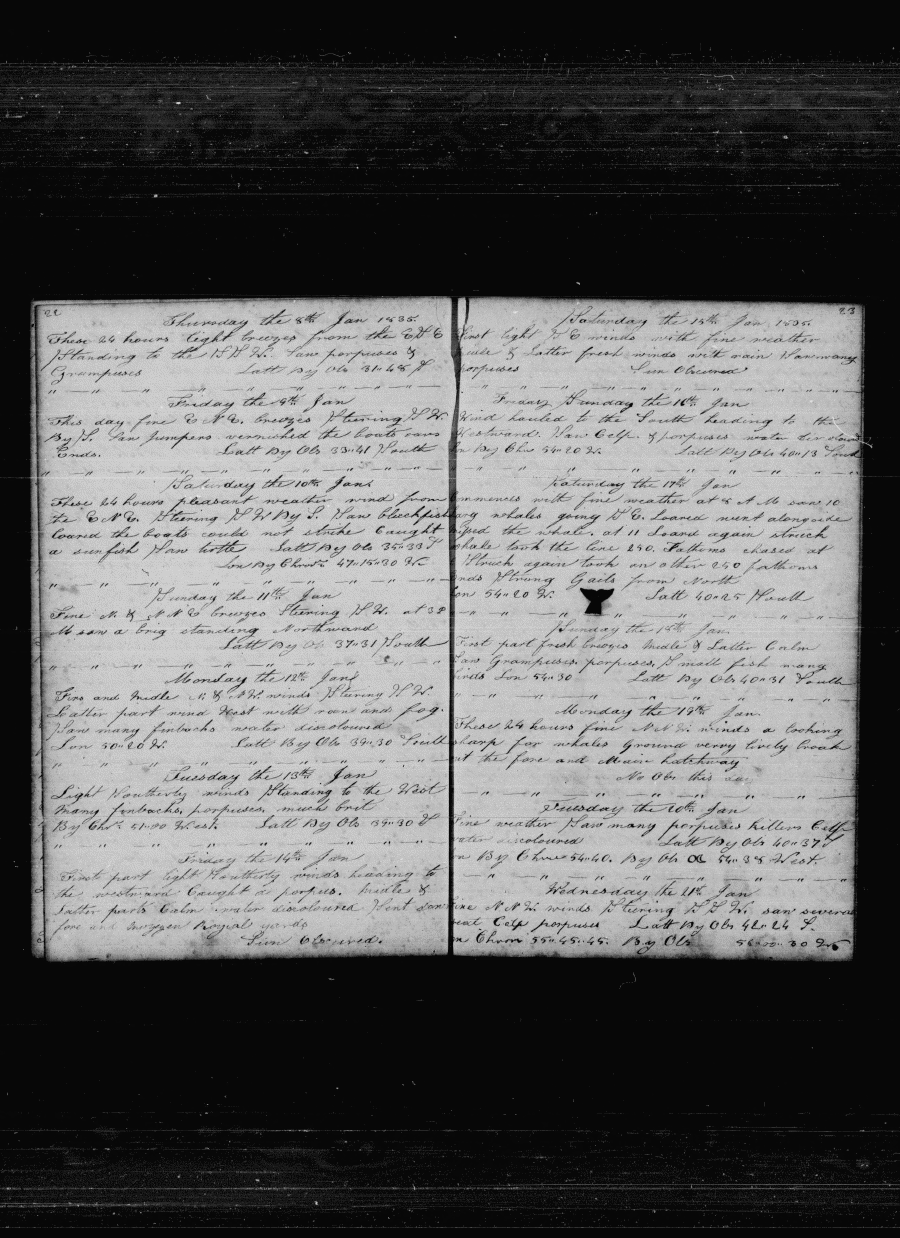 22
Thursday the 8th Jan 1835
These 24 hours light breezes from the E S E
Standing to the S S W. Saw porpuses &
Grampuses Latt By Obs 31-48 S
Friday the 9th Jan
This day fine E N E. breezes Steering S W.
By S. Saw jumpers vernished the boats oars
Ends. Latt By Obs 33-41 South
Saturday the 10th Jan
These 24 hours pleasant weather wind from
the E N E. Steering S W By S. Saw blackfish
loared the boats could not strike Caught
a sunfish Saw turtle Latt By Obs 35-33 S
Lon By Chron 47-15-30 W.
Sunday the 11th Jan
Fine N. & N N E breezes Steering S W. at 3 P
M saw a brig standing Northward
Latt By Obs 37-31 South
Monday the 12th Jan
Firs and Midle N & N W. winds Stering S W.
Latter part wind West with rain and fog.
Saw many finbacks water discoloured
Lon 50-20 W. Latt By Obs 39-30 South
Tuesday the 13th Jan
Light Southerly winds Standing to the West
Many finbacks, porpuses, much brit
By Chr 51-00 West. Latt By Obs 39-30 S
Friday the 14th Jan
First part light Southerly winds heading to
the westward Caught a porpus. Midle &
Latter parts Calm water discoloured Sent down
fore and mizzen Royal yards
Sun Obscured.
23
Saturday the 15th Jan 1835.
First light S E winds with fine weather
Midle & Latter fresh winds with rain Saw many
porpuses Sun Obscured
Friday Sunday the 16th Jan
Wind hauled to the South heading to the
Westward. Saw Celp & porpuses water
Lon By Chr 54-20 W. Latt By Obs 40-13 South
Saturday the 17th Jan
Commences with fine weather at 8 A M saw 10
whales going S E. Loared went alongside
the whale, at 11 Loard again struck
whale took the line 250. Fathoms chased at
Struck again took on other 250 fathoms
ends Strong Gails from North
Lon 54-20 W. Latt 40-25 South
Sunday the 18th Jan.
First part fresh breezes Midle & Latter Calm
Saw Grampuses, porpuses, Small fish many
birds Lon 54-30 Latt By Obs 40-31 South
Monday the 19th Jan.
These 24 hours fine N N W. winds a looking
sharp for whales Ground verry lively
at the fore and Main hatchway
No Obs this day
Tuesday the 20th Jan
Fine weather Saw many porpuses killers Celp
water discoloured Latt By Obs 40-37 S
Lon By Chron 54-40. By Obs 54-38 West.
Wednesday the 21st Jan
Fine N N W. winds Stering S S W. saw several
Celp porpuses Latt By Obs 42-24 S.
Lon Chron 55-45-45. By Obs 56-00-30 W